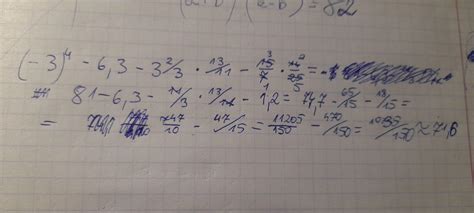 (a-b) = 82
(-3)⁴ - 6,3 - 3 2/3 · 13/11 - 15/7 · 14/25 =
81 - 6,3 - 11/3 · 13/11 - 1,2 = 74,7 - 65/15 - 18/15 =
= 747/10 - 47/15 = 11205/150 - 470/150 = 10735/150 ≈ 71,6